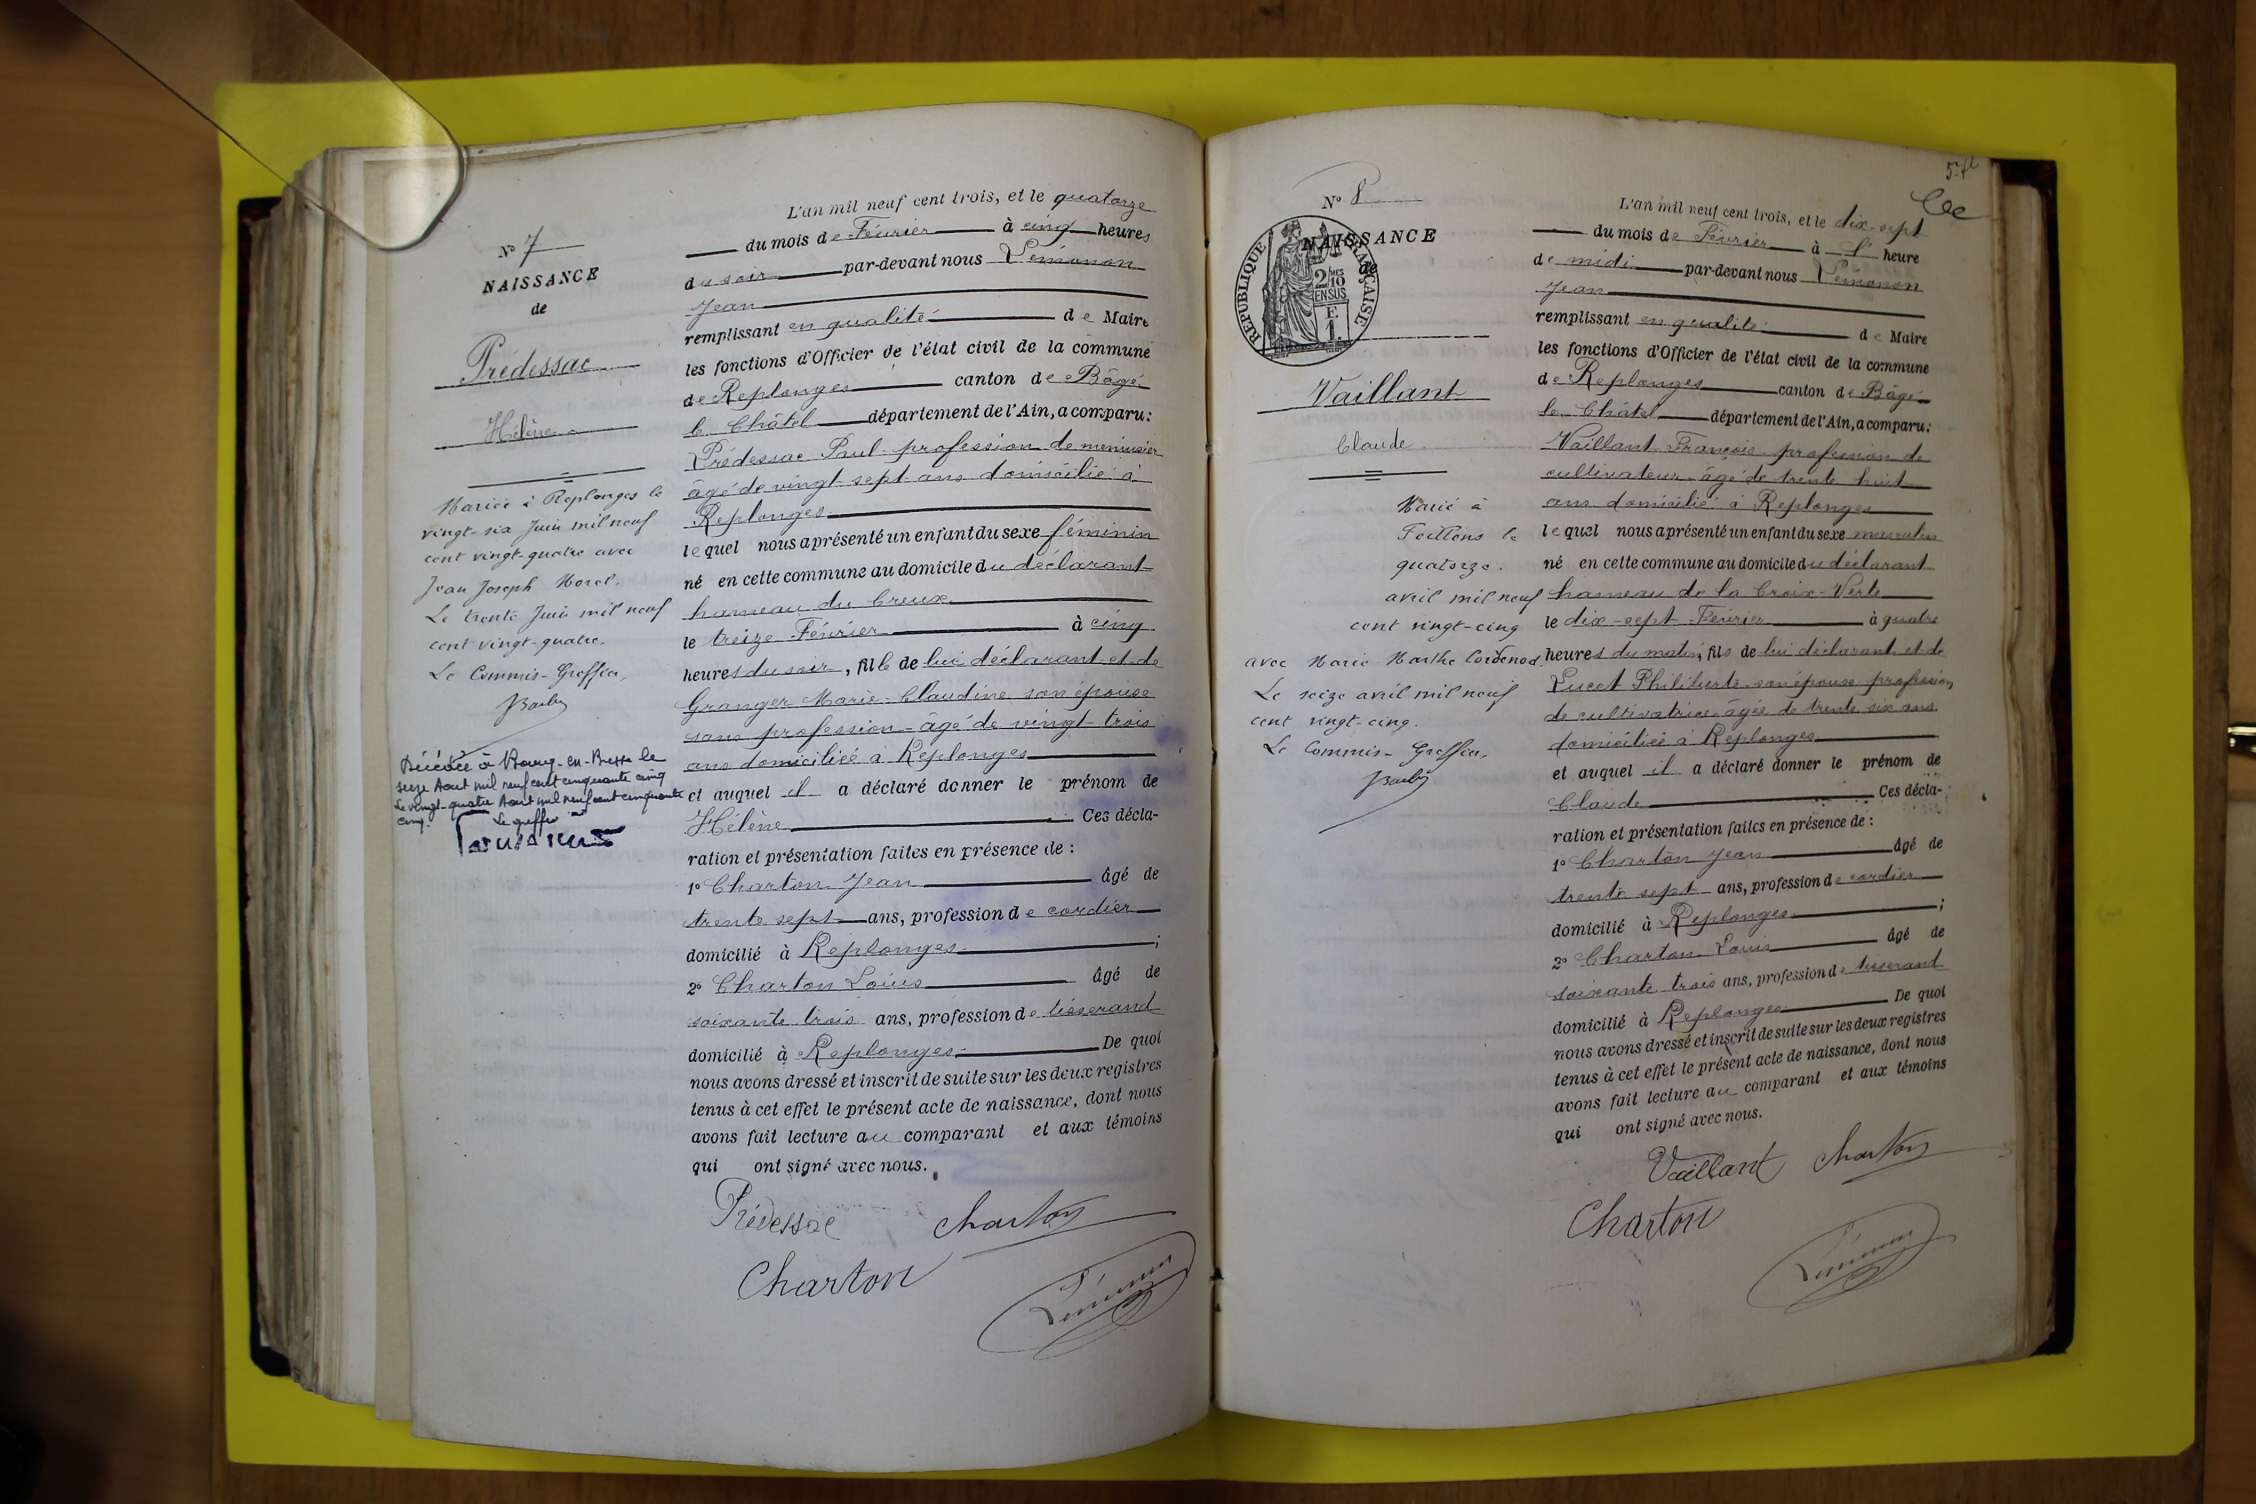 N° 7
NAISSANCE
de
Prédessac
Hélène
Mariée à Replonges le
vingt-six Juin mil neuf
cent vingt-quatre avec
Jean Joseph Morel.
Le trente Juin mil neuf
cent vingt-quatre.
Le Commis-Greffier,
Décédée à Bourg-en-Bresse le
seize Aout mil neuf cent cinquante cinq
Le vingt-quatre Aout mil neuf cent cinquante
cinq. Le greffier
L'an mil neuf cent trois, et le quatorze
du mois de Février à cinq heures
du soir par-devant nous Lémonon
Jean
remplissant en qualité de Maire
les fonctions d'Officier de l'état civil de la commune
de Replonges canton de Bâgé
le Châtel département de l'Ain, a comparu:
Prédessac Paul profession de menuisier
âgé de vingt-sept ans domicilié à
Replonges
lequel nous a présenté un enfant du sexe féminin
né en cette commune au domicile du déclarant
hameau du Creux
le treize Février à cinq
heures du soir, fille de lui déclarant et de
Granger Marie-Claudine son épouse
sans profession âgé de vingt-trois
ans domiciliée à Replonges
et auquel il a déclaré donner le prénom de
Hélène Ces décla-
ration et présentation faites en présence de :
1° Charton Jean âgé de
trente sept ans, profession de cordier
domicilié à Replonges ;
2° Charton Louis âgé de
soixante trois ans, profession de tisserand
domicilié à Replonges De quoi
nous avons dressé et inscrit de suite sur les deux registres
tenus à cet effet le présent acte de naissance, dont nous
avons fait lecture au comparant et aux témoins
qui ont signé avec nous.
Prédessac Charton
Charton
Lémonon
N° 8
NAISSANCE
de
RÉPUBLIQUE FRANÇAISE
2/10 MES
EN SUS
F.
1.
Vaillant
Claude
Marié à
Feillens le
quatorze
avril mil neuf
cent vingt-cinq
avec Marie Marthe Cordenod.
Le seize avril mil neuf
cent vingt-cinq.
Le Commis-Greffier,
L'an mil neuf cent trois, et le dix-sept
du mois de Février à heure
de midi par-devant nous Lémonon
Jean
remplissant en qualité de Maire
les fonctions d'Officier de l'état civil de la commune
de Replonges canton de Bâgé
le Châtel département de l'Ain, a comparu:
Vaillant François profession de
cultivateur âgé de trente huit
ans domicilié à Replonges
lequel nous a présenté un enfant du sexe masculin
né en cette commune au domicile du déclarant
hameau de la Croix-Verte
le dix-sept Février à quatre
heures du matin, fils de lui déclarant et de
Lucet Philiberte son épouse profession
de cultivatrice âgée de trente six ans
domiciliée à Replonges
et auquel il a déclaré donner le prénom de
Claude Ces décla-
ration et présentation faites en présence de :
1° Charton Jean âgé de
trente sept ans, profession de cordier
domicilié à Replonges ;
2° Charton Louis âgé de
soixante trois ans, profession de tisserand
domicilié à Replonges De quoi
nous avons dressé et inscrit de suite sur les deux registres
tenus à cet effet le présent acte de naissance, dont nous
avons fait lecture au comparant et aux témoins
qui ont signé avec nous.
Vaillant Charton
Charton
Lémonon